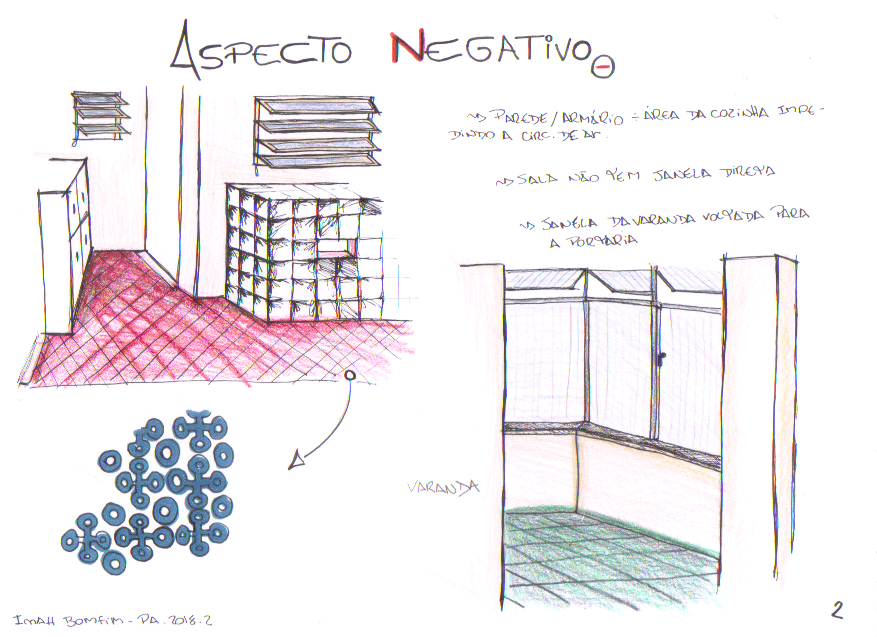 ASPECTO NEGATIVO
~> PAREDE/ARMÁRIO - ÁREA DA COZINHA IMPE-
DINDO A CIRC. DE AR.
~> SALA NÃO TEM JANELA DIRETA
~> JANELA DA VARANDA VOLTADA PARA
A PORTARIA
VARANDA
IMAH BOMFIM - PA. 2018.2
2